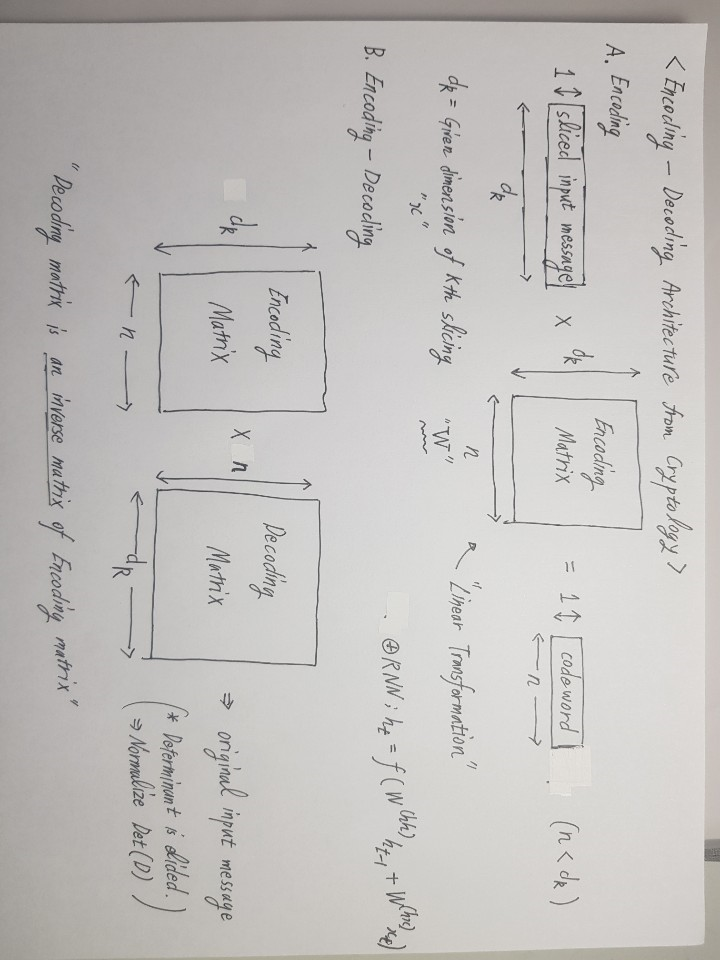 < Encoding - Decoding Architecture from Cryptology >
A. Encoding
1 ↕ sliced input message × dk Encoding Matrix = 1 ↕ codeword (n < dk)
dk
n
n
dk = Given dimension of Kth slicing
"x"
"W"
"Linear Transformation"
B. Encoding - Decoding
⊕ RNN ; ht = f(W^(hh) ht-1 + W^(hx) xt)
dk Encoding Matrix × n Decoding Matrix ⇒ original input message
n
dk
(* Determinant is elided.
⇒ Normalize Det(D))
"Decoding matrix is an inverse matrix of Encoding matrix"